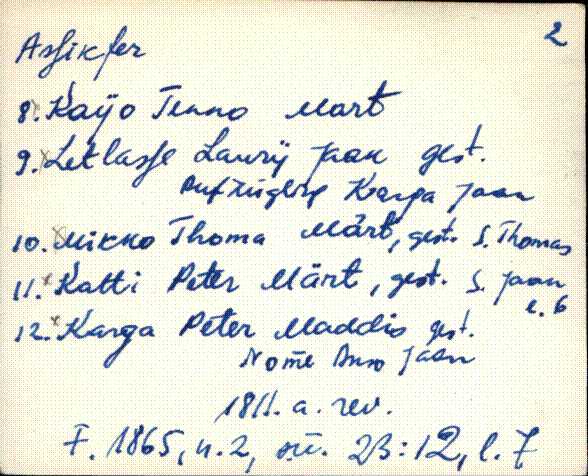 2
Assikfer
8. Kaijo Tenno Mart
9. Letlasse Laurij Jaak gest.
Karga Jaan
10. Mikko Thoma Märt, gest. S. Thomas
11. Katti Peter Märt, gest. S. Jaan
l. 6
12. Karga Peter Maddis gest.
Jaan
1811. a. rev.
F. 1865, n. 2, sü. 23:12, l. 7